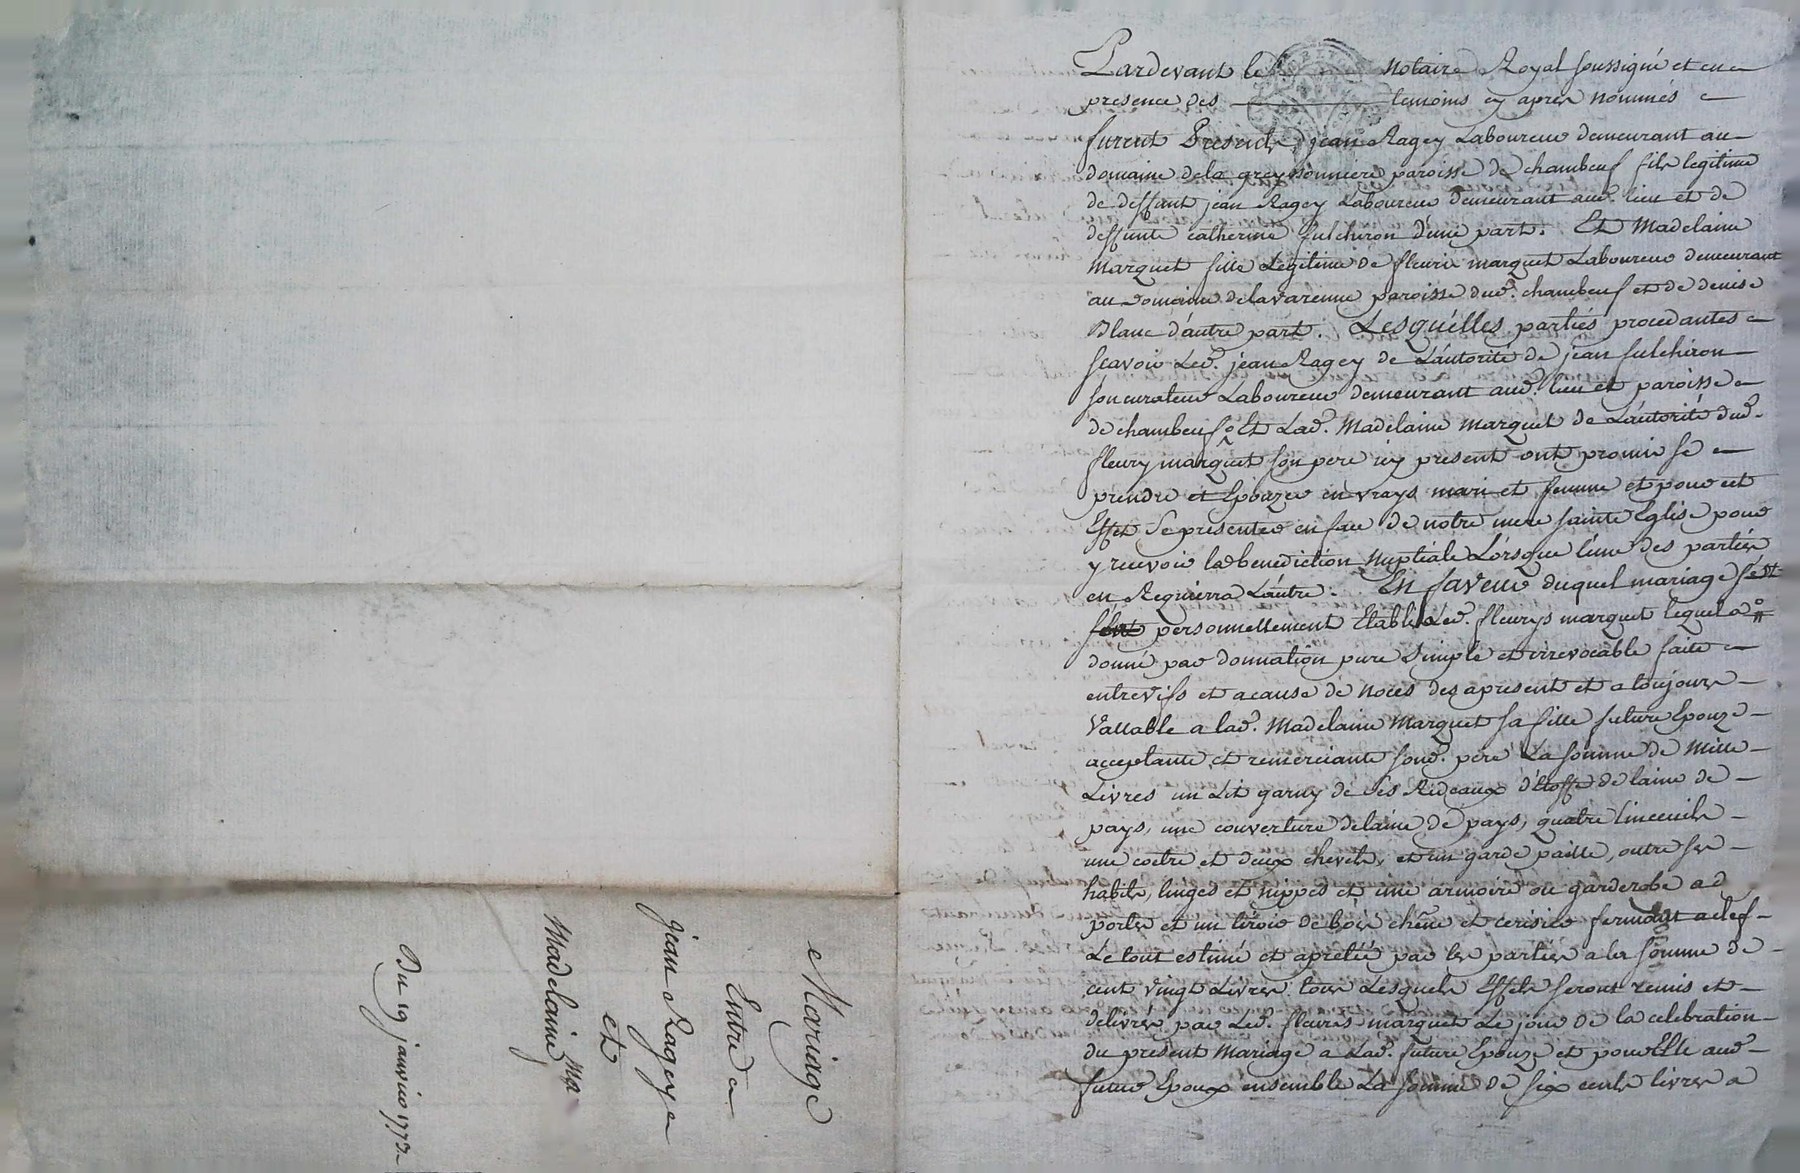 Mariage
Entre
jean Ragey
et
Madelaine ma
Du 19 janvier 1773
Pardevant le notaire Royal soussigné et en
presence des temoins cy apres nommés
furent Presents jean Ragey Laboureur demeurant au
domaine dela greysonniere paroisse de chambeuf fils legitime
de deffunt jean Ragey Laboureur demeurant aud. lieu et de
deffunte catherine fulchiron d'une part. Et Madelaine
Marquet fille Legitime de fleurie marquet Laboureur demeurant
au domaine delavarenne paroisse dud. chambeuf et de denise
Blanc d'autre part. Lesquélles partiés procedantes
scavoir Led. jean Ragey de L'autorité de jean fulchiron
son curateur Laboureur demeurant aud. lieu et paroisse
de chambeuf Et Lad. Madelaine Marquet de L'autorité dud.
fleury marquet son pere icy present ont promis se
prendre et Epouzer en vrays mari et femme et pour cet
Effet Se presenter en face de notre mere sainte Eglise pour
y recevoir la benediction Nuptiale Lorsque l'une des parties
en Requierra L'autre. En faveur duquel mariage s'est
personnellement Etabli Led. fleurys marquet lequel a
donné par donnation pure Simple et irrevocable faite
entrevifs et a cause de noces des apresent et a toujours
Vallable a lad. Madelaine Marquet sa fille future Epouze
acceptante et remerciante sond. pere La somme de Mille
Livres un Lit garny de Ses Rideaux d'étoffe de laine de
pays, une couverture de laine de pays, quatre linceuils
une coetre et deux chevets, et un garde paille, outre ses
habits, linges et nippes et une armoire ou garderobe a d
portes et un tiroir de bois chêne et cerisier fermant a clef
Le tout estimé et apretié par les parties a la somme de
cent vingt Livres tous Lesquels Effets seront remis et
delivrés par Led. fleuris marquet Le jour de la celebration
du present Mariage a Lad. future Epouze et pour Elle aud
futur Epoux ensemble La somme de six cents livres a